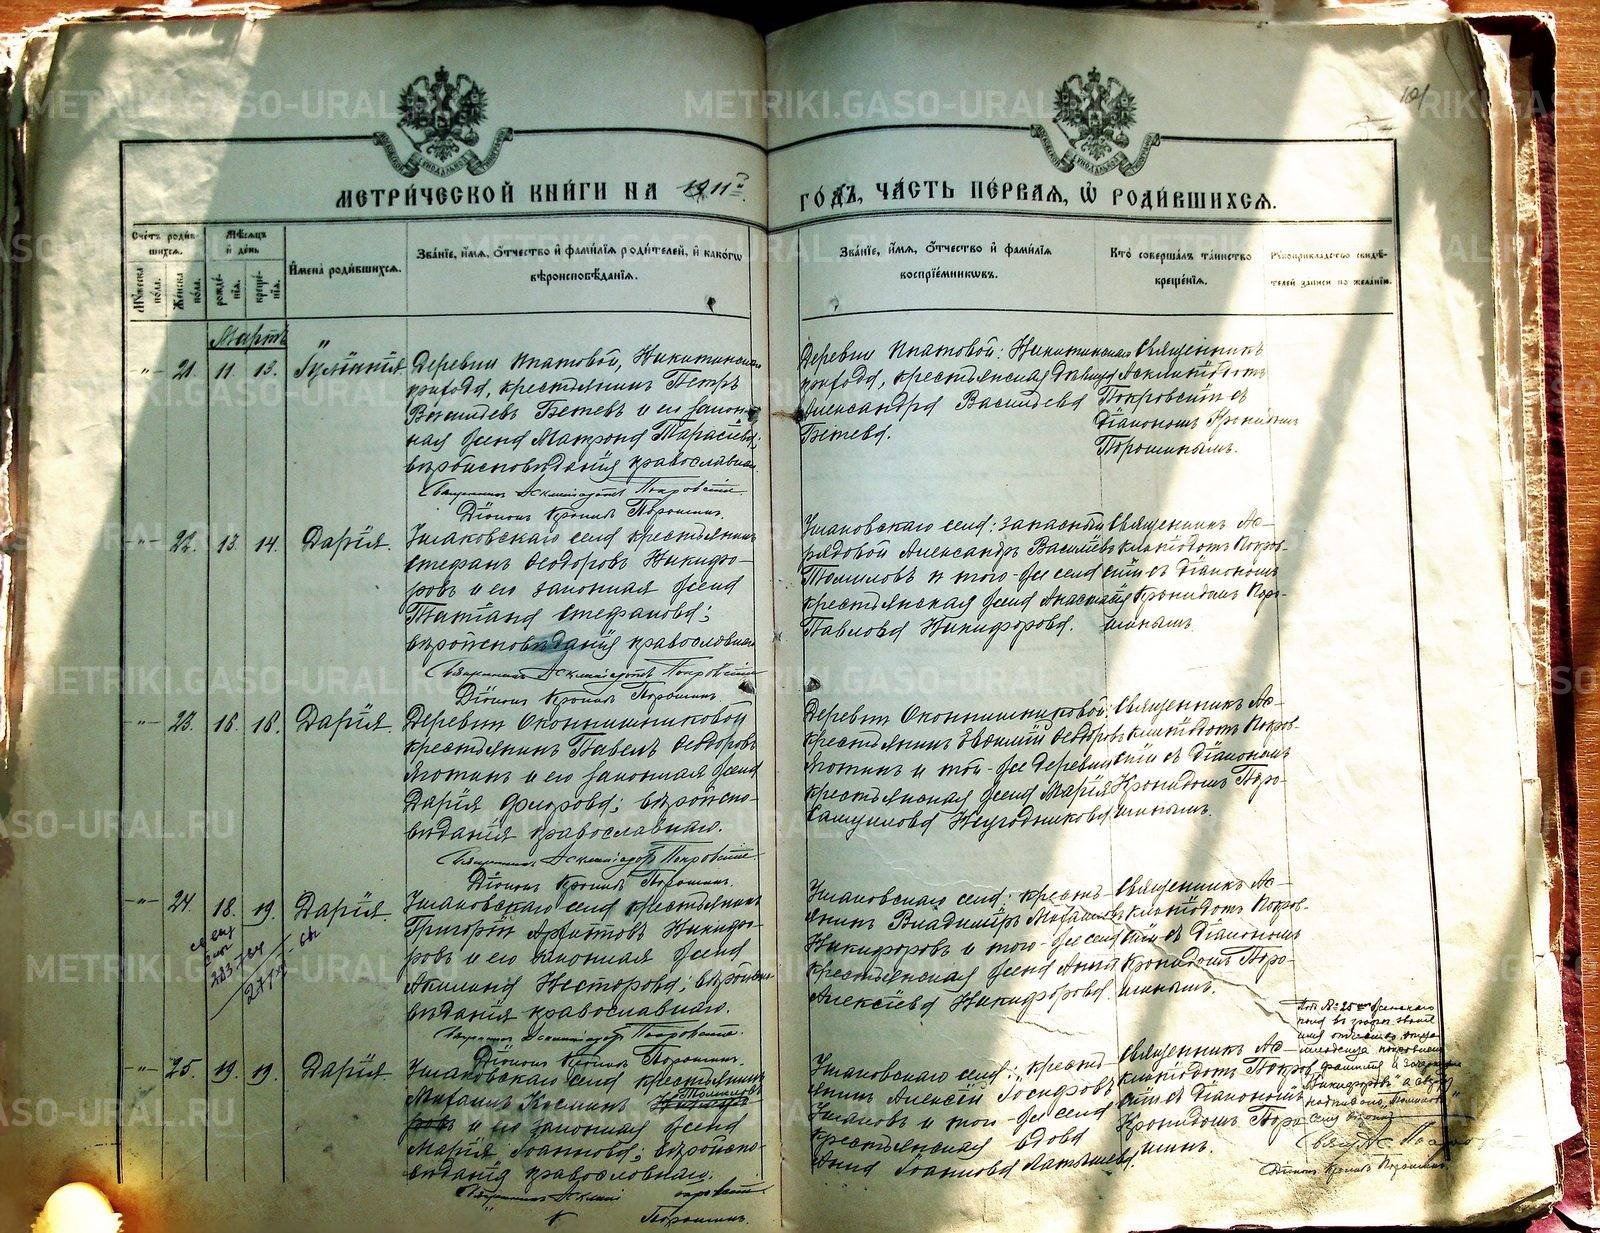 101
МЕТРИ́ЧЕСКОЙ КНИ́ГИ НА 1911
ГО́ДЪ, ЧА́СТЬ ПЕ́РВАЯ, Ѡ РОДИ́ВШИХСЯ.
Сче́тъ роди́вшихся.
Му́жеска по́ла.
Же́нска по́ла.
Мѣ́сяцъ и҆ де́нь
рожде́нія.
креще́нія.
И҆мена̀ роди́вшихся.
Зва́ніе, и҆́мя, ѻ҆́тчество и҆ фами́лія роди́телей, и҆ како́гѡ
вѣроисповѣ́данія.
Зва́ніе, и҆́мя, ѻ҆́тчество и҆ фами́лія
воспріе́мниковъ.
Кто̀ соверша́лъ та́инство
креще́нія.
Рукоприкладство свидѣ-
телей записи по желанію.
Мартъ
21. 11. 13.
Деревни Ипатовой, Никитинскаго
прихода, крестьянинъ Петръ
Васильевъ Бетевъ и его закон-
ная жена Матрона Тарасіева;
вѣроисповѣданія православнаго.
Священникъ Асклипіодотъ Покровскій.
Діаконъ Кронидъ Порошинъ.
Деревни Ипатовой: Никитинскаго
прихода, крестьянская дѣвица
Александра Васильева
Бетева.
Священникъ
Асклипіодотъ
Покровскій съ
Діакономъ Кронидомъ
Порошинымъ.
22. 13. 14. Дарія.
Ушаковскаго села крестьянинъ
Стефанъ Ѳеодоровъ Никифо-
ровъ и его законная жена
Татіана Стефанова;
вѣроисповѣданія православнаго
Священникъ Асклипіодотъ Покровскій
Діаконъ Кронидъ Порошинъ
Ушаковскаго села: запасный
рядовой Александръ Василіевъ
Томиловъ и того-же села
крестьянская жена Анастасія
Павлова Никифорова.
Священникъ Ас-
клипіодотъ Покров-
скій съ Діакономъ
Кронидомъ Поро-
шинымъ.
23. 16. 18. Дарія.
Деревни Оконишниковой
крестьянинъ Павелъ Ѳеодоровъ
и его законная жена
Дарія; вѣроиспо-
вѣданія православнаго.
Священникъ Асклипіодотъ Покровскій.
Діаконъ Кронидъ Порошинъ.
Деревни Оконишниковой:
крестьянинъ Евѳимій Ѳеодоровъ
и той-же деревни
крестьянская жена Марія
Самуилова Неугодникова
Священникъ Ас-
клипіодотъ Покров-
скій съ Діакономъ
Кронидомъ Поро-
шинымъ.
24. 18. 19. Дарія.
Ушаковскаго села крестьянинъ
Григорій Никифо-
ровъ и его законная жена
Акилина Несторова; вѣроиспо-
вѣданія православнаго.
Священникъ Асклипіодотъ Покровскій.
Діаконъ Кронидъ Порошинъ.
Ушаковскаго села: кресть-
янинъ Владиміръ Михаиловъ
Никифоровъ и того-же села
крестьянская жена Анна
Алексіева Никифорова.
Священникъ Ас-
клипіодотъ Покров-
скій съ Діакономъ
Кронидомъ Поро-
шинымъ.
25. 19. 19. Дарія
Ушаковскаго села крестьянинъ
Михаилъ Косминъ Никифо-
Томиловъ
ровъ и его законная жена
Марія Іоаннова; вѣроиспо-
вѣданія православнаго.
Священникъ Аскли Покровскій
К Порошинъ.
Ушаковскаго села: кресть-
янинъ Алексій Іосифовъ
Ушаковъ и того-же села
крестьянская вдова
Анна Іоаннова Латышева.
Священникъ Ас-
клипіодотъ Покров-
скій съ Діакономъ
Кронидомъ Поро-
шинъ.
Діаконъ Кронидъ Порошинъ.
METRIKI.GASO-URAL.RU